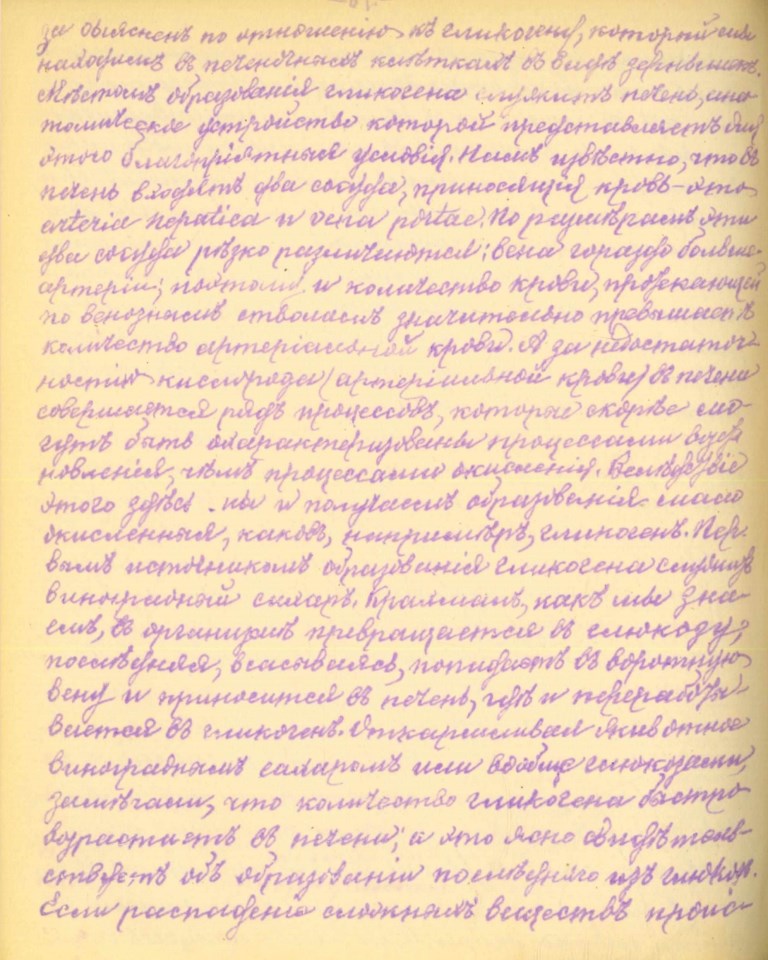 да выясненъ по отношенію къ гликогену, который мы
находимъ въ печеночныхъ клѣткахъ въ видѣ зернышекъ.
Мѣстомъ образованія гликогена служитъ печень, ана-
томическое устройство которой представляетъ для
этого благопріятныя условія. Намъ извѣстно, что въ
печень входятъ два сосуда, приносящія кровь – это
arteria hepatica и vena portae. По размѣрамъ эти
два сосуда рѣзко различаются: вена гораздо больше
артеріи; поэтому и количество крови, протекающей
по венознымъ стволамъ значительно превышаетъ
количество артеріальной крови. А за недостаточ-
ностію кислорода (артеріальной крови) въ печени
совершается рядъ процессовъ, которые скорѣе мо-
гутъ быть охарактеризованы процессами возста-
новленія, чѣмъ процессами окисленія. Вслѣдствіе
этого здѣсь мы и получаемъ образованія мало
окисленныя, каковъ, напримѣръ, гликогенъ. Пер-
вымъ источникомъ образованія гликогена служитъ
виноградный сахаръ. Крахмалъ, какъ мы зна-
емъ, въ организмѣ превращается въ глюкозу;
послѣдняя, всасываясь, попадаетъ въ воротную
вену и приносится въ печень, гдѣ и перерабаты-
вается въ гликогенъ. Откармливая животное
винограднымъ сахаромъ или вообще глюкозами,
замѣчали, что количество гликогена быстро
возрастаетъ въ печени; а это ясно свидѣтель-
ствуетъ объ образованіи послѣдняго изъ глюкозъ.
Если распаденіе сложныхъ веществъ проис-